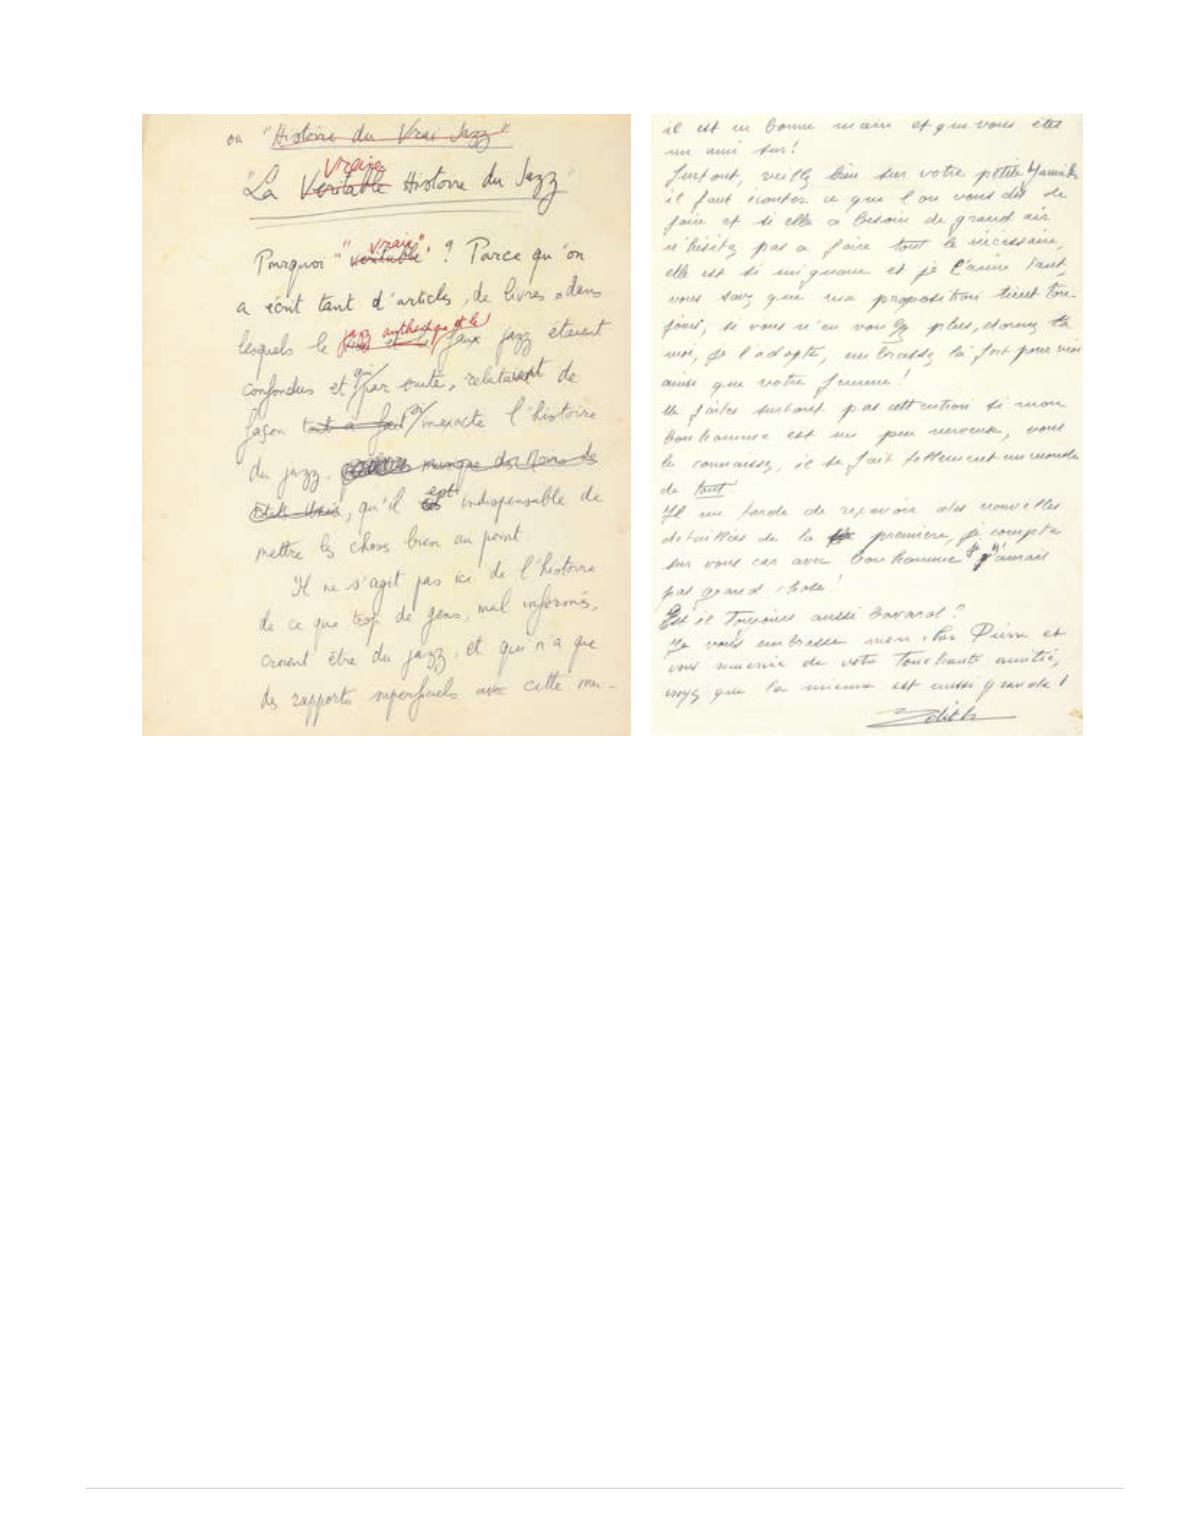 ou "Histoire du Vrai Jazz"
vraie
"La Véritable Histoire du Jazz"
"vraie"
Pourquoi "véritable" ? Parce qu'on
a écrit tant d'articles, de livres, dans
jazz authentique et le
lesquels le faux jazz étaient
qui
confondus et par suite, relataient de
façon tout à fait inexacte l'histoire
du jazz, musique des Noirs des
Etats-Unis, qu'il est indispensable de
mettre les choses bien au point.
Il ne s'agit pas ici de l'histoire
de ce que trop de gens, mal informés,
croient être du jazz, et qui n'a que
des rapports superficiels avec cette mu-
il est en bonne main et que vous êtes
un ami sur!
Surtout, veillez bien sur votre petite Yannick
il faut écouter ce que l'on vous dit de
faire et si elle a besoin de grand air
n'hésitez pas a faire tout le nécessaire,
elle est si mignonne et je l'aime tant,
vous savez que ma proposition tient tou-
jours, si vous n'en voulez plus, donnez la
moi, je l'adopte, embrassez la fort pour moi
ainsi que votre femme!
Ne faites surtout pas attention si mon
bonhomme est un peu nerveux, vous
le connaissez, il se fait tellement un monde
de tout
Il me tarde de recevoir des nouvelles
detaillées de la première, je compte
sur vous car avec bonhomme j'aurais
pas grand chose!
Est il toujours aussi bavard?
Je vous embrasse mon cher Pierre et
vous remercie de votre touchante amitié,
voyez que la mienne est aussi grande!
Edith